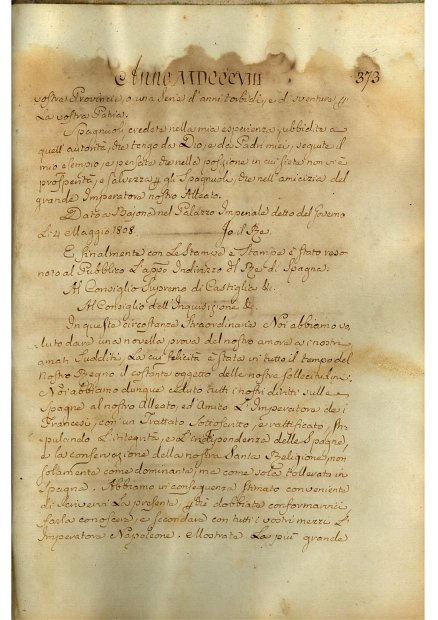 Anno MDCCCVIII 373
vostra Provincia, o una serie d'anni torbidi, e di sventura
La vostra Patria.
Spagnuoli, credete nella mia esperienza, ubbidite a
quell'autorità, che tengo da Dio, e da Padri miei, seguite il
mio esempio, e pensate che nella posizione in cui siete non vi è
prosperità, e salvezza gli Spagnuoli, che nell'amicizia del
grande Imperatore nostro Alleato.
Dato a Bajona nel Palazzo Imperiale detto del Governo
Li 4 Maggio 1808. Io il Re.
E finalmente con Le stampe è stato reso
noto al Pubblico L'appo Indirizzo del Re di Spagna.
Al Consiglio Supremo di Castiglia &c.
Al Consiglio dell'Inquisizione &c.
In queste circostanze straordinarie Noi abbiamo vo
luto dare una novella prova del nostro amore a i nostri
amati Sudditi, La cui felicità è stata in tutto il tempo del
nostro Regno il costante oggetto delle nostre sollecitudini.
Noi abbiamo dunque ceduto tutti i nostri diritti sulle
Spagne al nostro Alleato, ed Amico L'Imperatore de i
Francesi, con un Trattato sottoscritto, e rattificato, sti
pulando L'integrità, e L'indipendenza delle Spagne,
e la conservazione della nostra Santa Religione, non
solamente come dominante, ma come sola tollerata in
Spagna. Abbiamo in conseguenza stimato conveniente
di scrivervi La presente, che dobbiate conformarvi,
farla conoscere, e secondare con tutti i vostri mezzi L'
Imperatore Napoleone. Mostrate La più grande